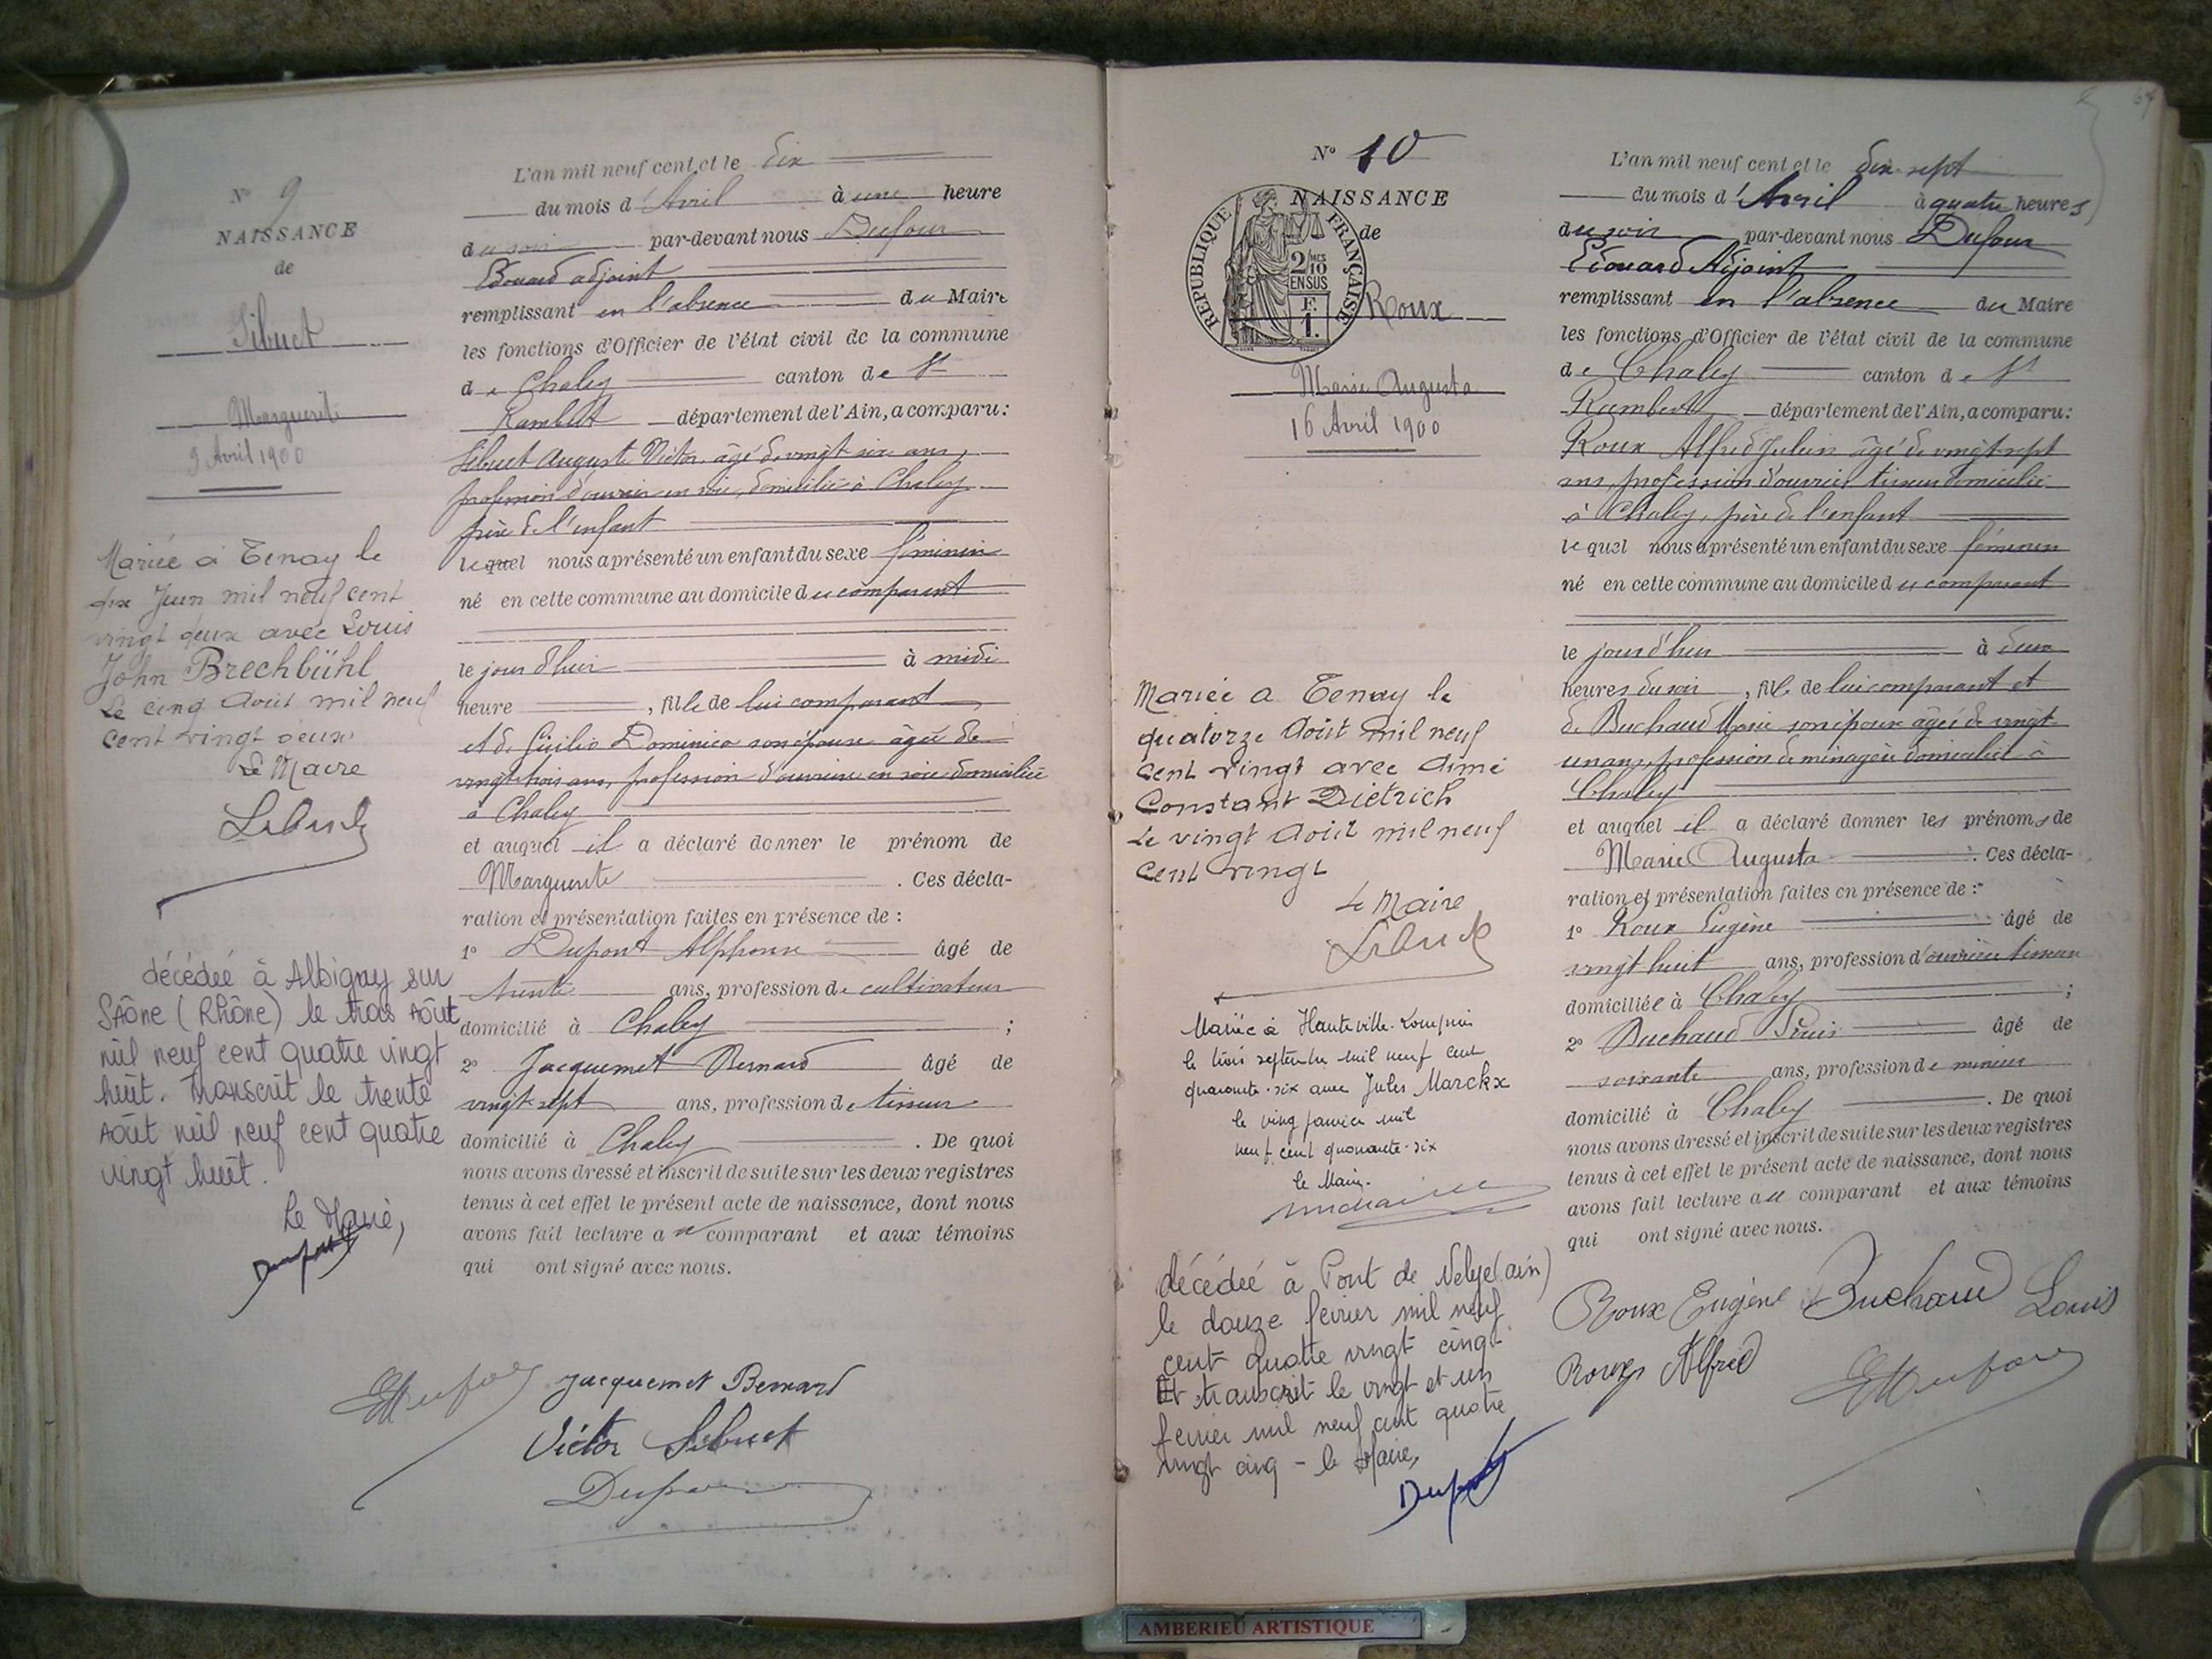 N° 9
NAISSANCE
de
Sibuet
Marguerite
9 Avril 1900
Mariée à Tenay le
dix Juin mil neuf cent
vingt deux avec Louis
John Brechbühl
Le cinq Août mil neuf
cent vingt deux
Le Maire
décédée à Albigny sur
Saône (Rhône) le trois Août
mil neuf cent quatre vingt
huit. Transcrit le trente
Août mil neuf cent quatre
vingt huit.
Le Maire,
L'an mil neuf cent et le dix
du mois d'Avril à une heure
du soir par-devant nous Dufour
Édouard adjoint
remplissant en l'absence du Maire
les fonctions d'Officier de l'état civil de la commune
de Chaley canton de St
Rambert département de l'Ain, a comparu:
Sibuet Auguste Victor âgé de vingt six ans,
profession d'ouvrier en soie, domicilié à Chaley
père de l'enfant
lequel nous a présenté un enfant du sexe féminin
né en cette commune au domicile du comparant
le jour d'hier à midi
heure , fille de lui comparant
et de Dominica son épouse âgée de
vingt trois ans, profession d'ouvrière en soie domiciliée
à Chaley
et auquel il a déclaré donner le prénom de
Marguerite . Ces décla-
ration et présentation faites en présence de :
1° Dupont Alphonse âgé de
trente ans, profession de cultivateur
domicilié à Chaley ;
2° Jacquemet Bernard âgé de
vingt-sept ans, profession de tisseur
domicilié à Chaley . De quoi
nous avons dressé et inscrit de suite sur les deux registres
tenus à cet effet le présent acte de naissance, dont nous
avons fait lecture au comparant et aux témoins
qui ont signé avec nous.
EDufour Jacquemet Bernard
Victor Sibuet
N° 10
NAISSANCE
de
RÉPUBLIQUE FRANÇAISE
2/10
EN SUS
F.
1.
Roux
Marie Augusta
16 Avril 1900
Mariée a Tenay le
quatorze Août mil neuf
cent vingt avec Aimé
Constant Dietrich
Le vingt Août mil neuf
cent vingt
Le Maire
Mariée à Hauteville-Lompnes
le trois septembre mil neuf cent
quarante-six avec Jules Marckx
le
neuf cent quarante-six
le Maire.
décédée à Pont de Velye (ain)
le douze fevrier mil neuf
cent quatre vingt cinqt
Et transcrit le vingt et un
fevrier mil neuf cent quatre
vingt cinq - le Maire,
64
L'an mil neuf cent et le dix-sept
du mois d'Avril à quatre heures
du soir par-devant nous Dufour
Édouard Adjoint
remplissant en l'absence du Maire
les fonctions d'Officier de l'état civil de la commune
de Chaley canton de St
Rambert département de l'Ain, a comparu:
Roux Alfred Julien âgé de vingt-sept
ans, profession d'ouvrier tisseur domicilié
à Chaley, père de l'enfant
lequel nous a présenté un enfant du sexe féminin
né en cette commune au domicile du comparant
le jour d'hier à deux
heures du soir , fille de lui comparant et
de Buchaud Marie son épouse âgée de vingt
un ans, profession de ménagère domiciliée à
Chaley
et auquel il a déclaré donner les prénoms de
Marie Augusta . Ces décla-
ration et présentation faites en présence de :
1° Roux Eugène âgé de
vingt huit ans, profession d'ouvrier tisseur
domicilié à Chaley ;
2° Buchaud Louis âgé de
soixante ans, profession de mineur
domicilié à Chaley . De quoi
nous avons dressé et inscrit de suite sur les deux registres
tenus à cet effet le présent acte de naissance, dont nous
avons fait lecture au comparant et aux témoins
qui ont signé avec nous.
Roux Eugène Buchaud Louis
Roux Alfred EDufour
AMBERIEU ARTISTIQUE